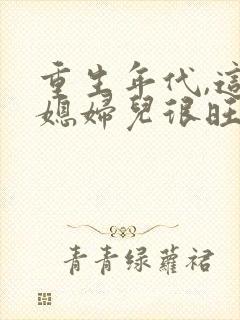 重生年代,這
媳婦兒很旺
青青绿蘿裙